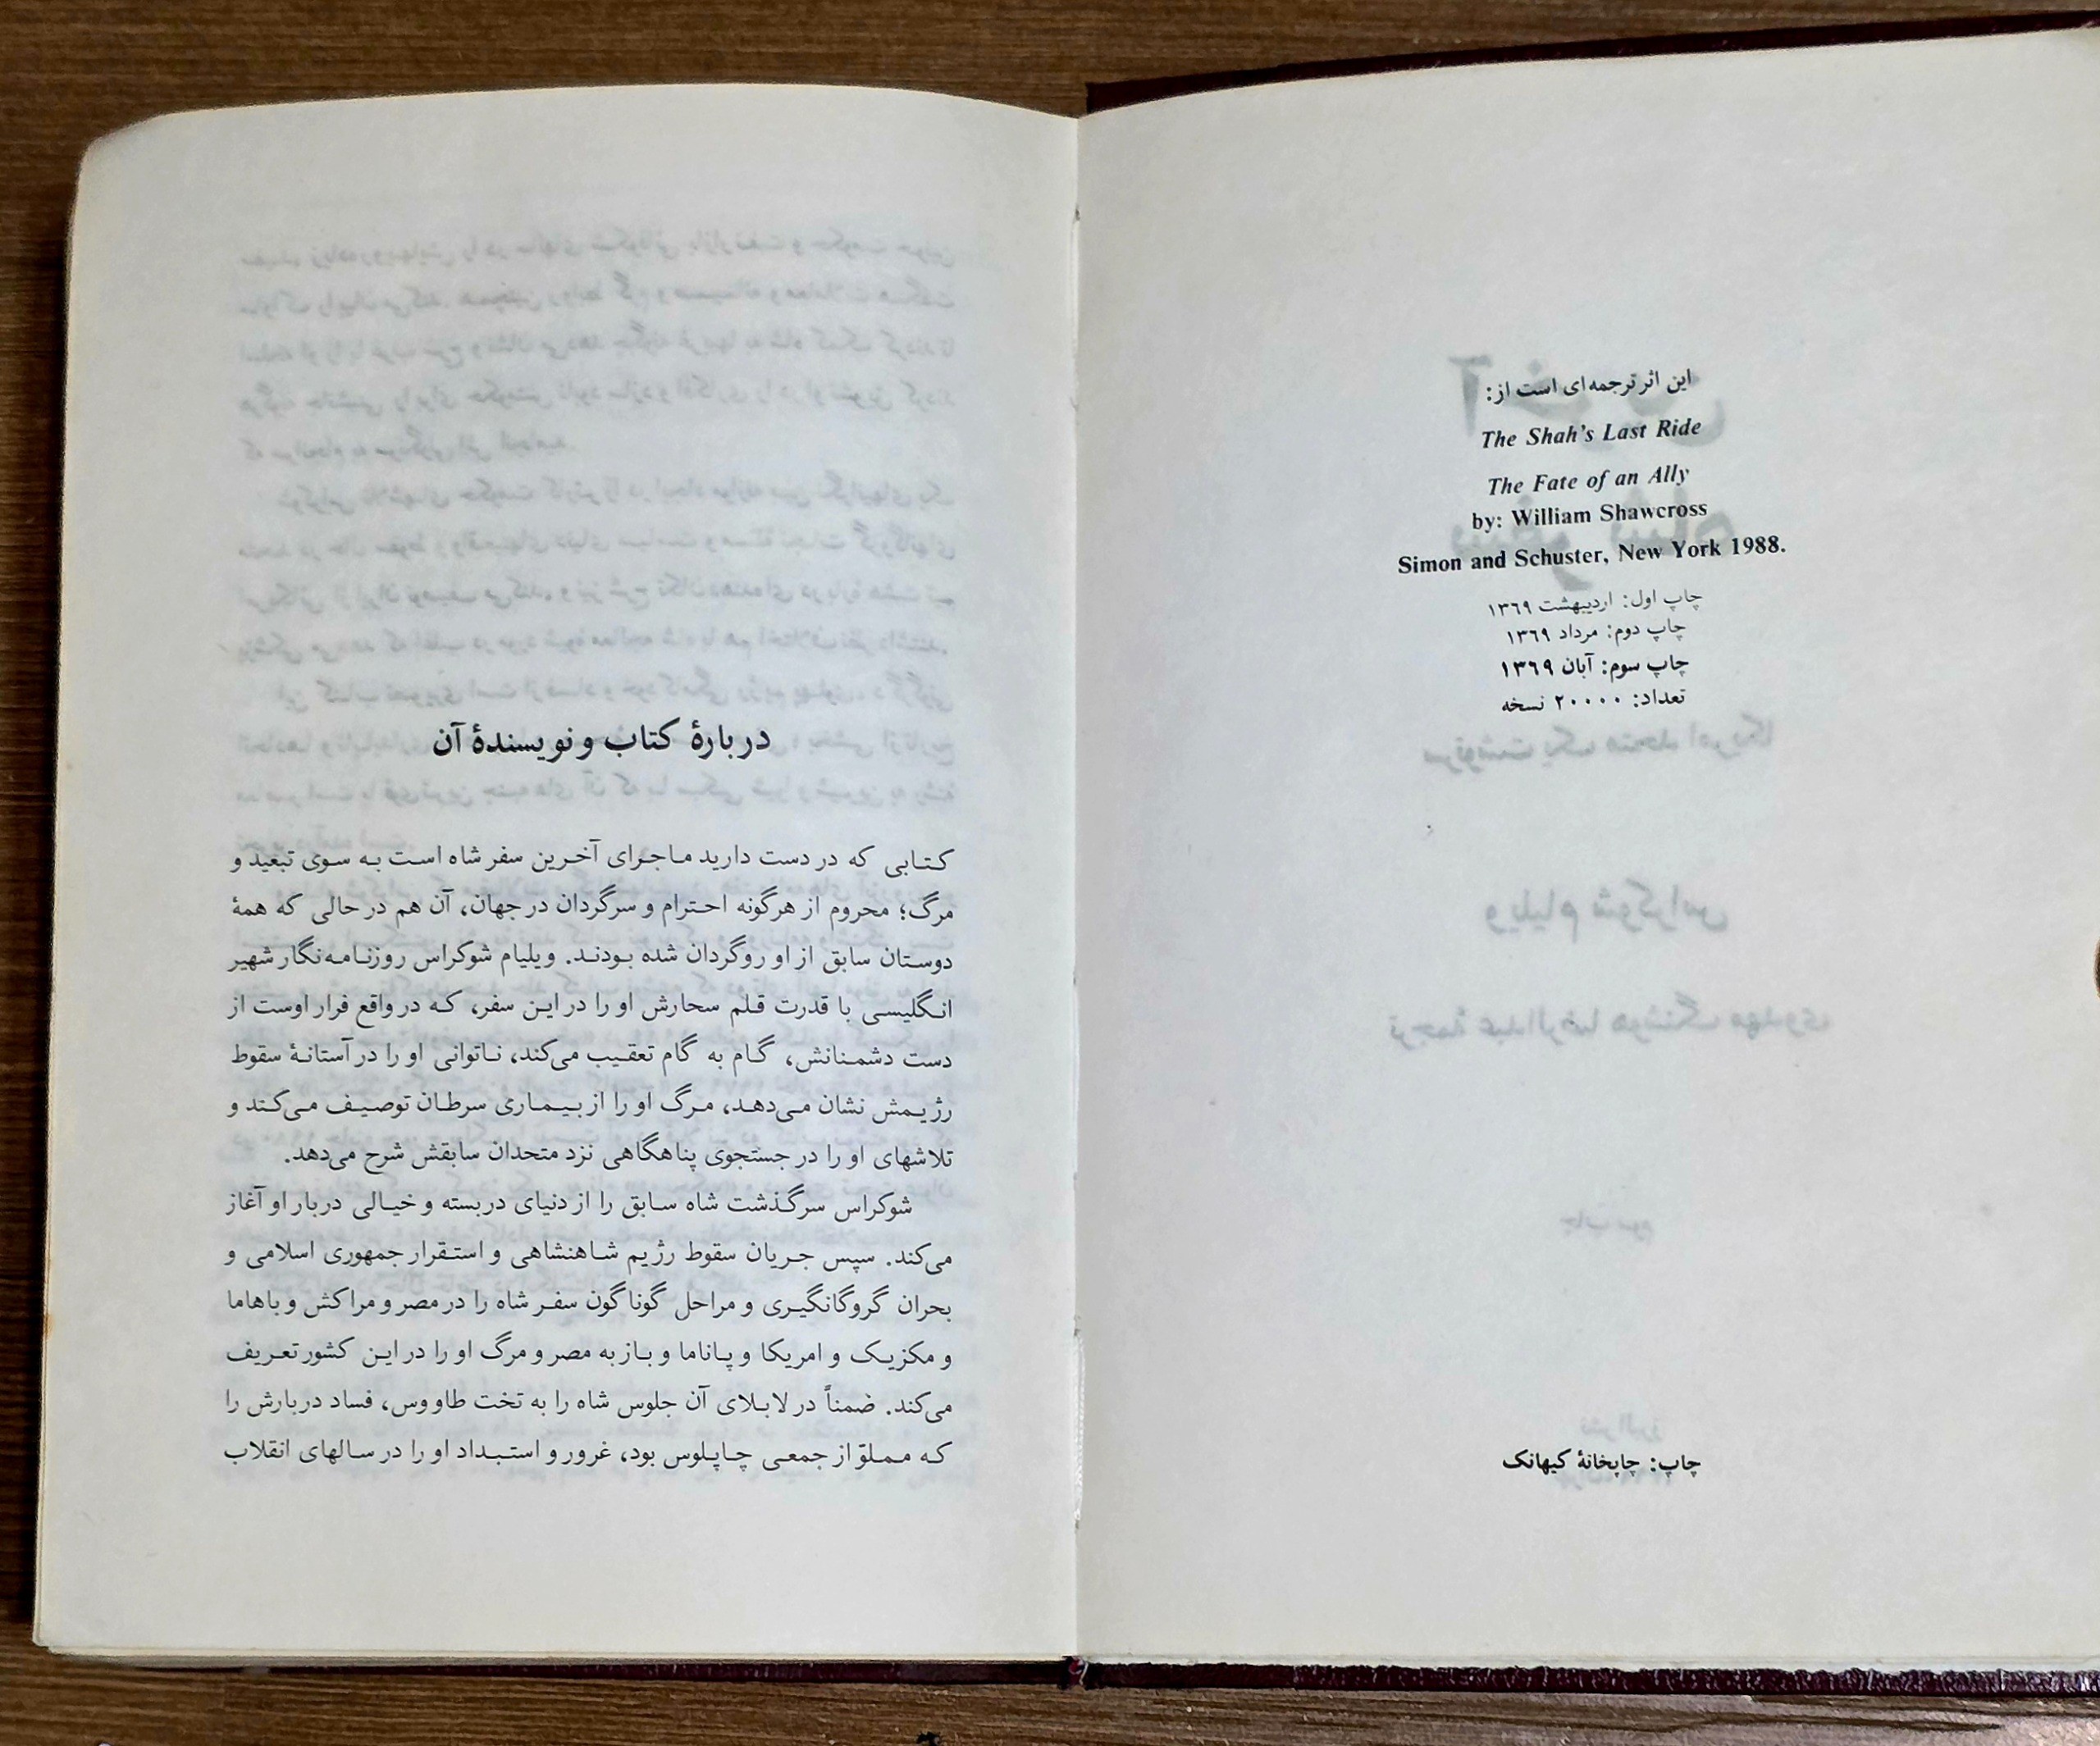 این اثر ترجمه‌ای است از:
The Shah's Last Ride
The Fate of an Ally
by: William Shawcross
Simon and Schuster, New York 1988.
چاپ اول: اردیبهشت ۱۳۶۹
چاپ دوم: مرداد ۱۳۶۹
چاپ سوم: آبان ۱۳۶۹
تعداد: ۲۰۰۰۰ نسخه
چاپ: چاپخانهٔ کیهانک
دربارهٔ کتاب و نویسندهٔ آن
کتابی که در دست دارید ماجرای آخرین سفر شاه است به سوی تبعید و
مرگ؛ محروم از هرگونه احترام و سرگردان در جهان، آن هم در حالی که همهٔ
دوستان سابق از او روگردان شده بودند. ویلیام شوکراس روزنامه‌نگار شهیر
انگلیسی با قدرت قلم سحارش او را در این سفر، که در واقع فرار اوست از
دست دشمنانش، گام به گام تعقیب می‌کند، ناتوانی او را در آستانهٔ سقوط
رژیمش نشان می‌دهد، مرگ او را از بیماری سرطان توصیف می‌کند و
تلاشهای او را در جستجوی پناهگاهی نزد متحدان سابقش شرح می‌دهد.
شوکراس سرگذشت شاه سابق را از دنیای دربسته و خیالی دربار او آغاز
می‌کند. سپس جریان سقوط رژیم شاهنشاهی و استقرار جمهوری اسلامی و
بحران گروگانگیری و مراحل گوناگون سفر شاه را در مصر و مراکش و باهاما
و مکزیک و امریکا و پاناما و باز به مصر و مرگ او را در این کشور تعریف
می‌کند. ضمناً در لابلای آن جلوس شاه را به تخت طاووس، فساد دربارش را
که مملوّ از جمعی چاپلوس بود، غرور و استبداد او را در سالهای انقلاب